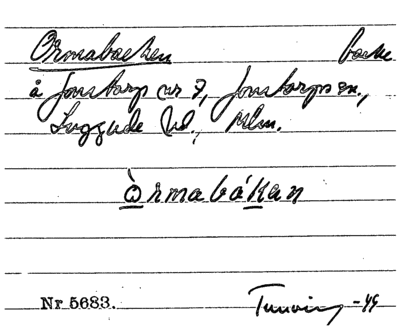 Ormabacken backe
å Jonstorp nr 7, Jonstorps sn,
Luggude hd., Mlm.
Òrmabákan
Nr 5683. -49